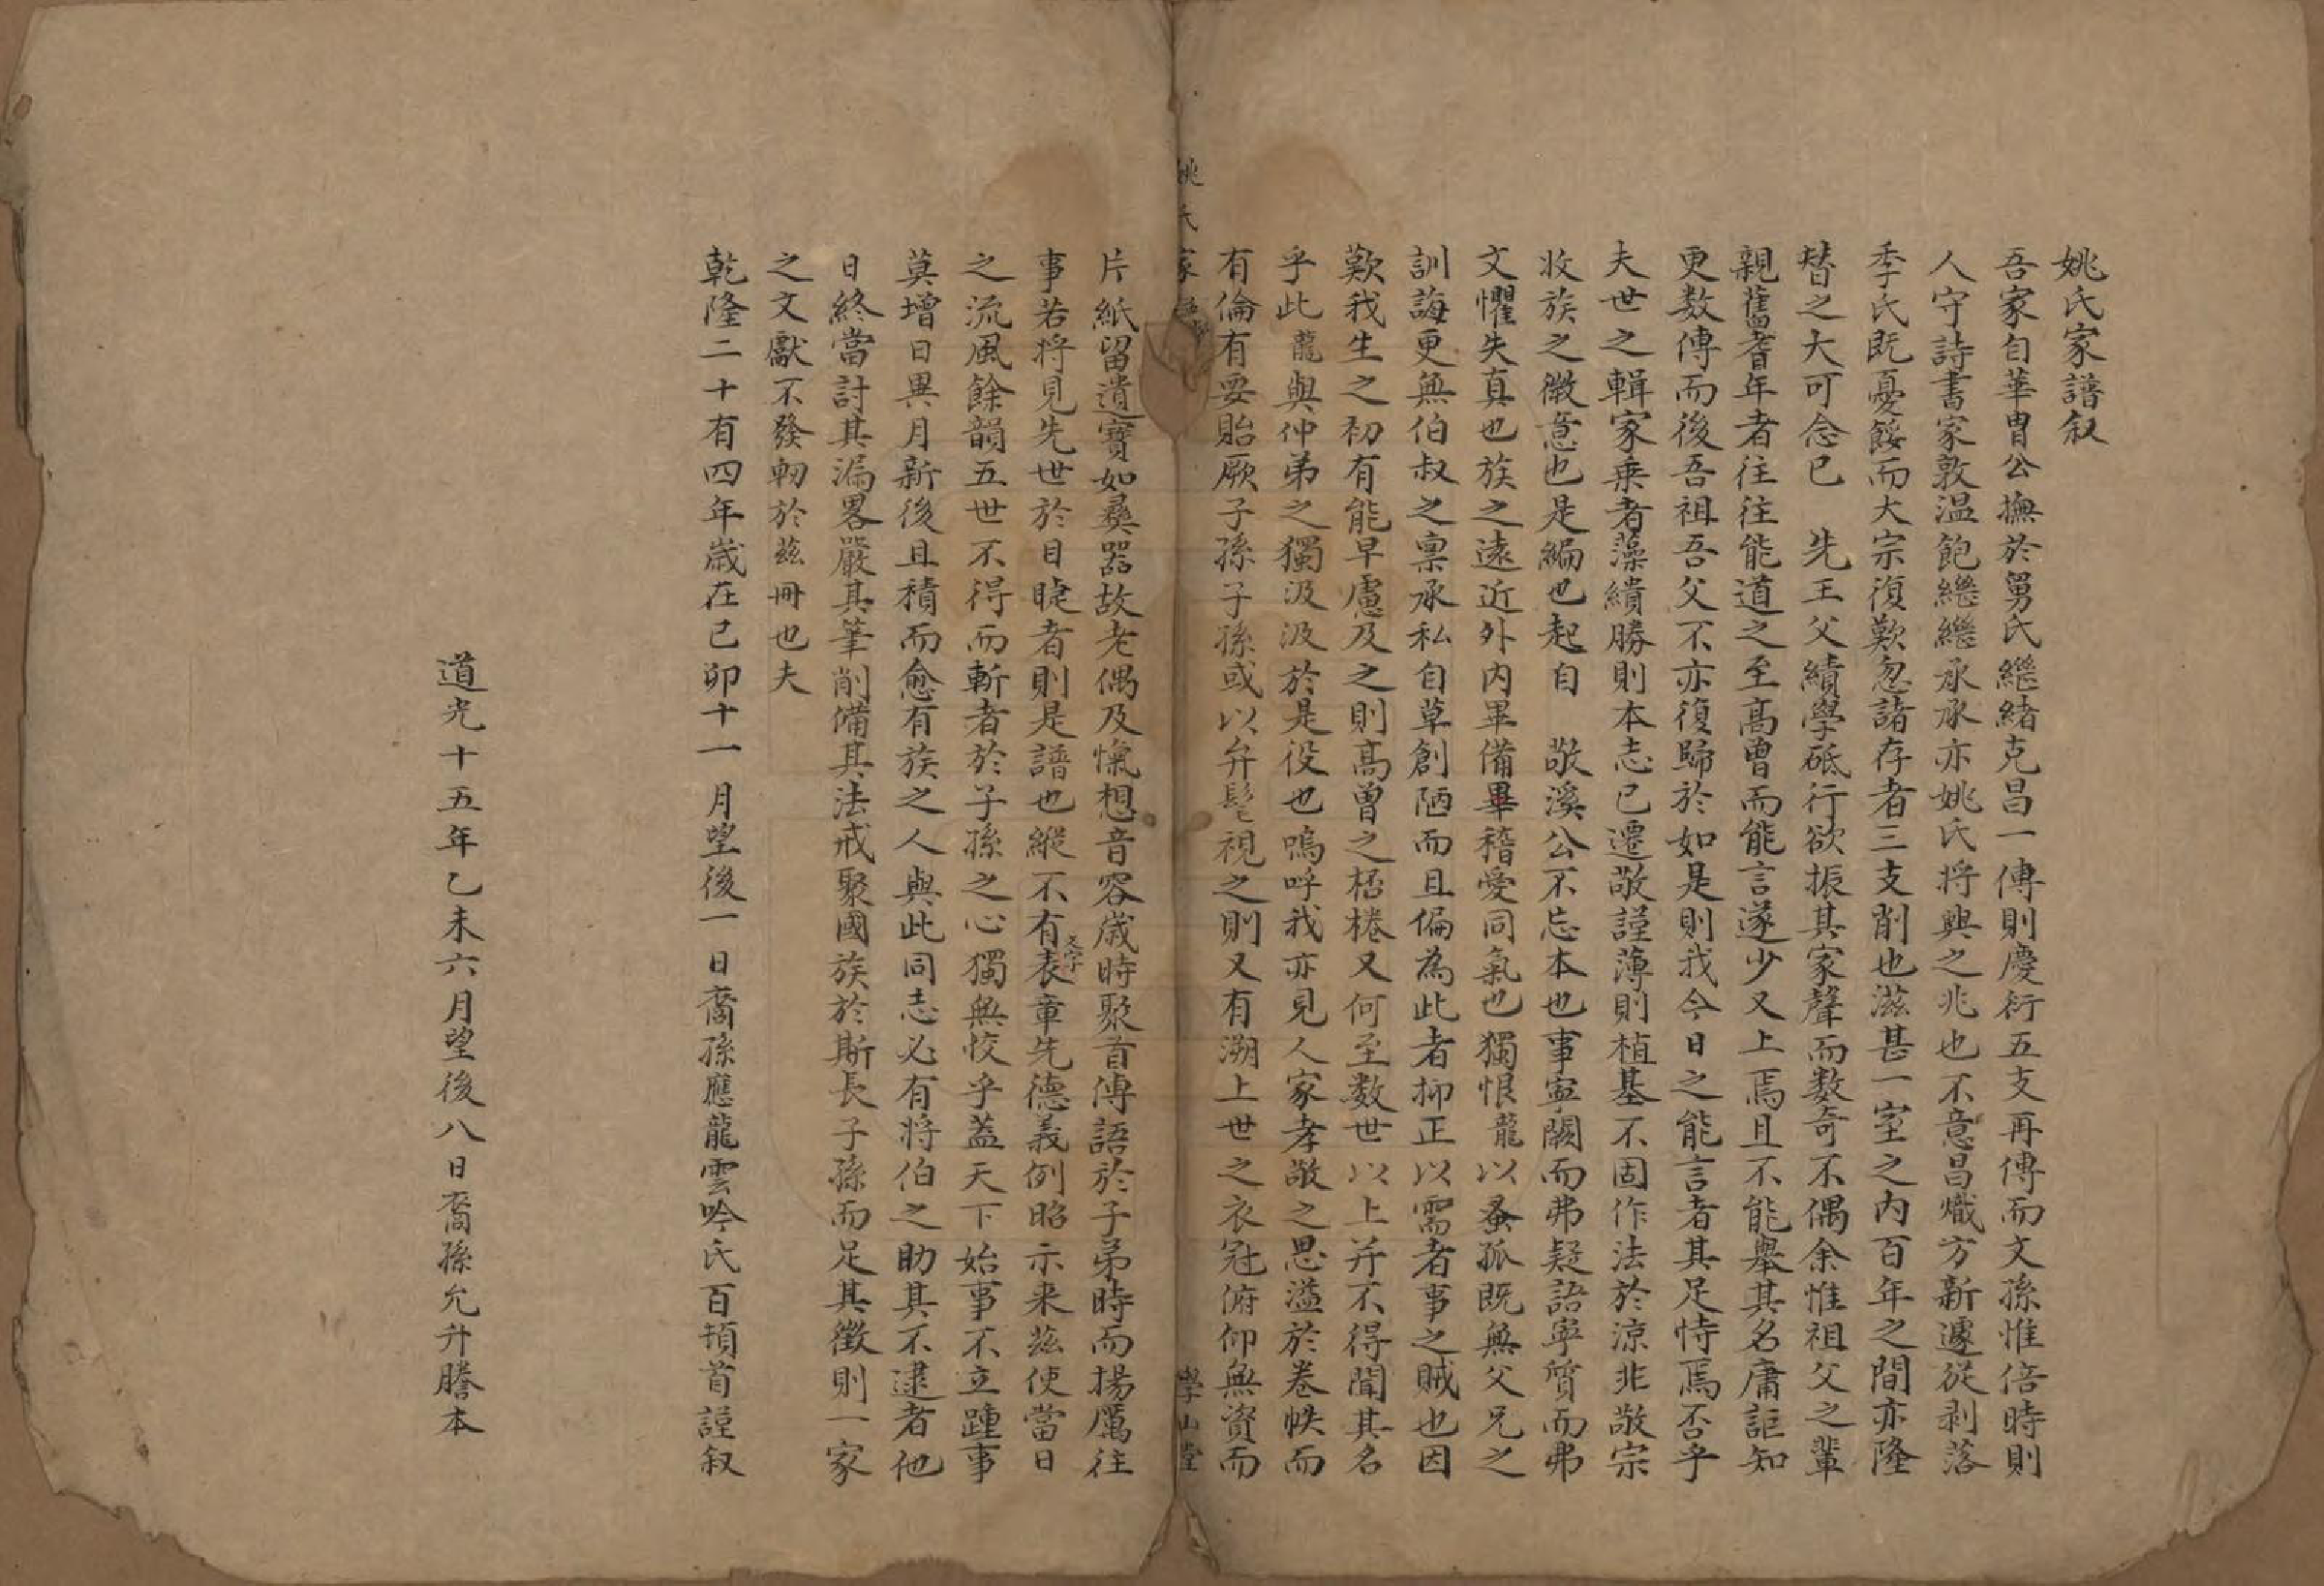 姚氏家譜叙
吾家自華胄公撫於舅氏繼緒克昌一傳則慶衍五支再傳而文孫惟倍時則
人守詩書家敦温飽繼繼承承亦姚氏將興之兆也不意昌熾方新遽從剥落
季氏既憂餒而大宗復歎忽諸存者三支削也滋甚一室之内百年之間亦隆
替之大可念已 先王父績學砥行欲振其家聲而数奇不偶余惟祖父之輩
親舊耆年者往往能道之至高曾而能言遂少又上焉且不能舉其名庸詎知
更数傳而後吾祖吾父不亦復歸於如是則我今日之能言者其足恃焉否乎
夫世之輯家乗者藻繢勝則本志已遷敬謹薄則植基不固作法於涼非敬宗
收族之微意也是編也起自 敬溪公不忘本也事寧闕而弗疑語寧質而弗
文懼失真也族之遠近外内畢備畢稽愛同氣也獨恨龍以蚤孤既無父兄之
訓誨更無伯叔之禀承私自草創陋而且偏為此者抑正以需者事之賊也因
歎我生之初有能早慮及之則高曾之桮棬又何至数世以上并不得聞其名
乎此龍與仲弟之獨汲汲於是役也嗚呼我亦見人家孝敬之思溢於卷帙而
有倫有要貽厥子孫子孫或以弁髦視之則又有溯上世之衣冠俯仰無資而
姚氏家
學山堂
片紙留遺寶如彛器故老偶及愾想音容歲時聚首傳語於子弟時而揚厲往
事若將見先世於目睫者則是譜也縱不有文字表章先德義例昭示来兹使當日
之流風餘韻五世不得而斬者於子孫之心獨無恔乎蓋天下始事不立踵事
莫增日異月新後且積而愈有族之人與此同志必有將伯之助其不逮者他
日終當討其漏畧嚴其筆削備其法戒聚國族於斯長子孫而足其徵則一家
之文獻不發軔於兹冊也夫
乾隆二十有四年歲在己卯十一月望後一日裔孫應龍雲吟氏百頓首謹叙
道光十五年乙未六月望後八日裔孫允升謄本